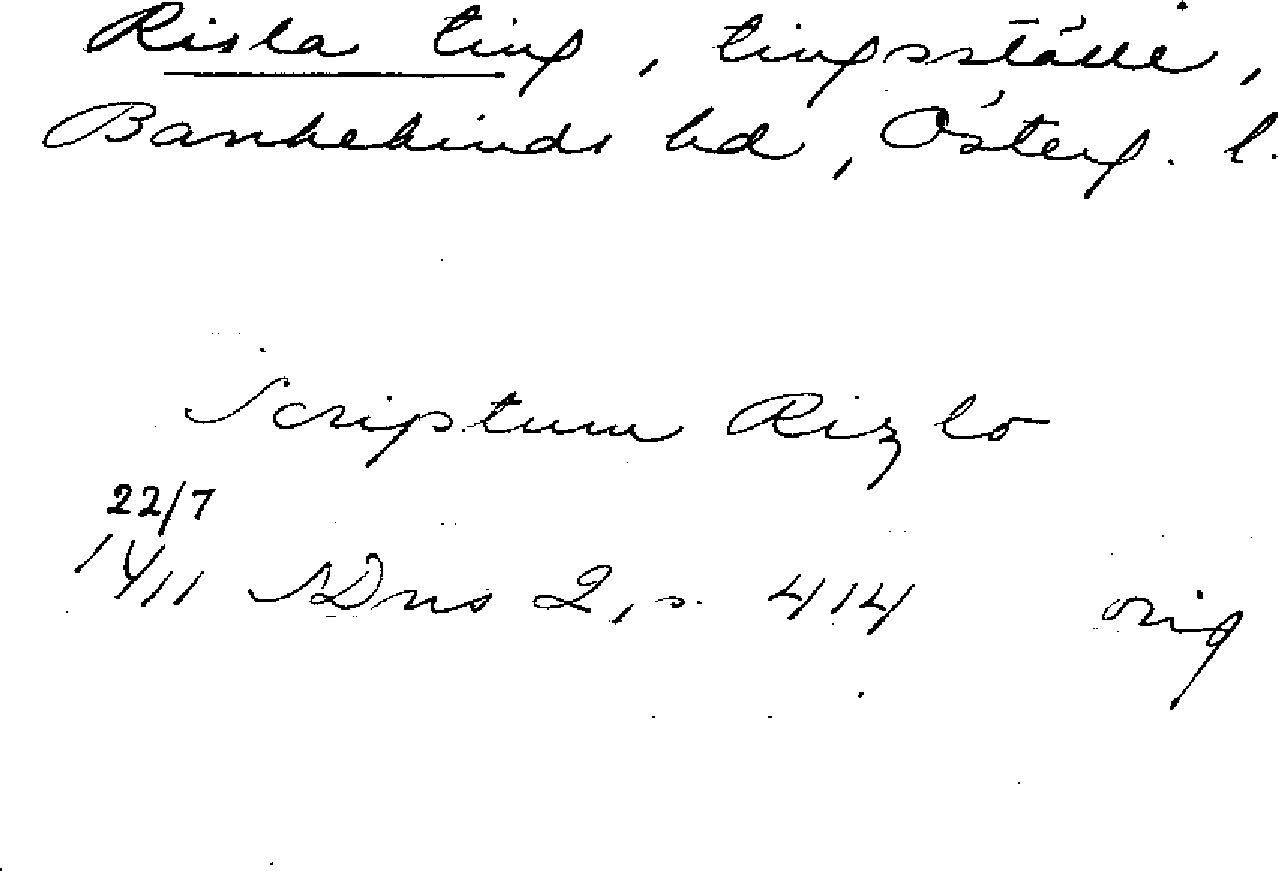 Risla ting, tingsställe,
Bankekinds hd, Österg. l.
Scriptum Rizlo
22/7
1411 SDns 2, s. 414 orig